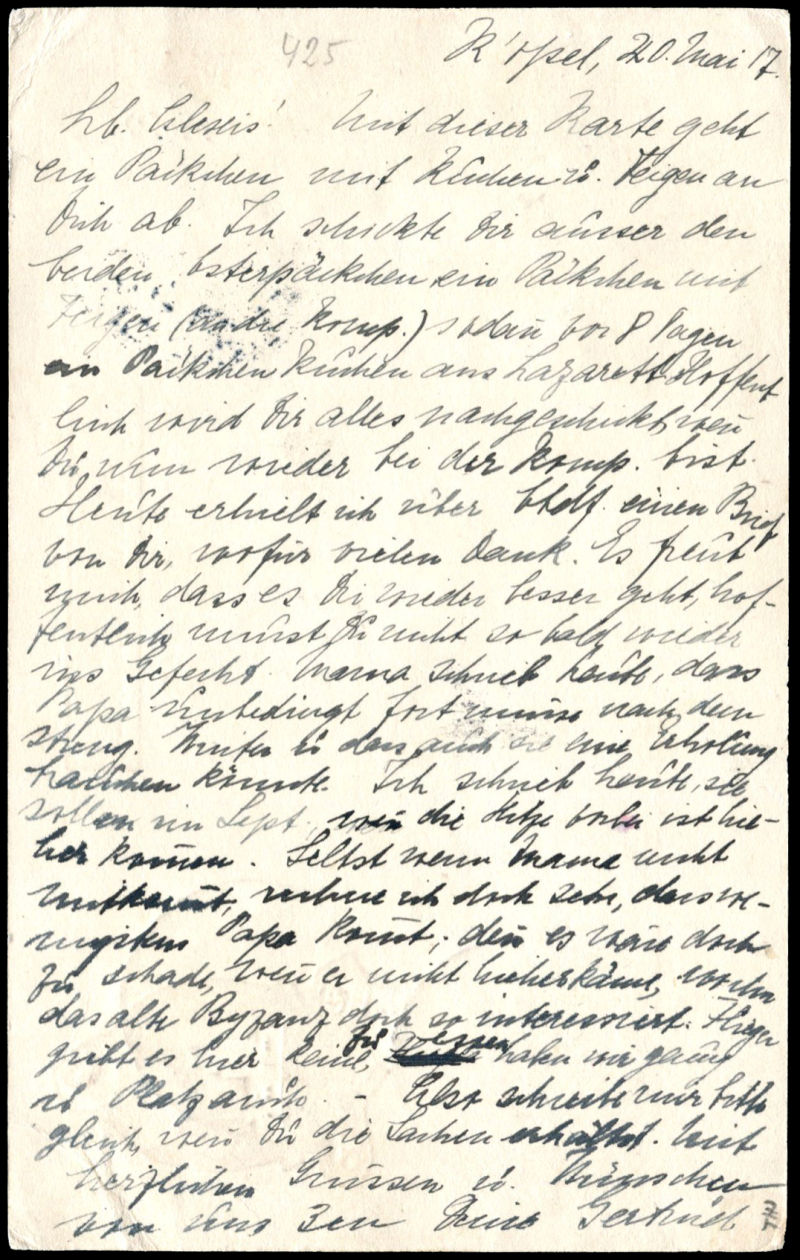 425
K'opel, 20. Mai 17.
Lb. Alexis! Mit dieser Karte geht
ein Päckchen mit Kuchen u. Feigen an
Dich ab. Ich schickte Dir ausser den
beiden Osterpäckchen ein Päckchen mit
Feigen (an die Komp.) sodan̄ vor 8 Tagen
ein Päckchen Kuchen ans Lazarett. Hoffent
lich wird Dir alles nachgeschickt, wen̄
Du nun wieder bei der Komp. bist.
Heute erhielt ich über einen Brief
von Dir, wofür vielen Dank. Es freut
mich, dass es Dir wieder besser geht, hof-
fentlich musst Du nicht so bald wieder
ins Gefecht. Mama schrieb heute, dass
Papa unbedingt fort müsse nach dem
streng. Winter u. dass auch sie eine Erholung
brauchen könnte. Ich schrieb heute, sie
sollen im Sept., wen̄ die Hitze vorbei ist hie-
her kom̄en. Selbst wenn Mama nicht
mitkom̄t, rechne ich doch sehr, dass we-
nigstens Papa kom̄t; den̄ es wäre doch
zu schade, wen̄ er nicht hieherkäme, wo ihn
das alte Byzanz doch so interessiert. Fliegen
gibt es hier keine, zu essen haben wir genug
u. Platz auch. - Also schreibe mir bitte
gleich, wen̄ Du die Sachen erhältst. Mit
herzlichen Grüssen u. Wünschen
von uns 3en Deine Gertrud